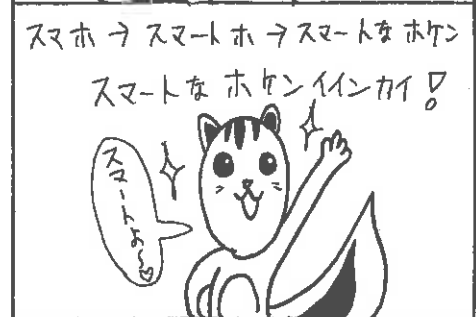 スマホ→スマートホ→スマートなホケン
スマートなホケンイインカイ!
スマートよ〜♡